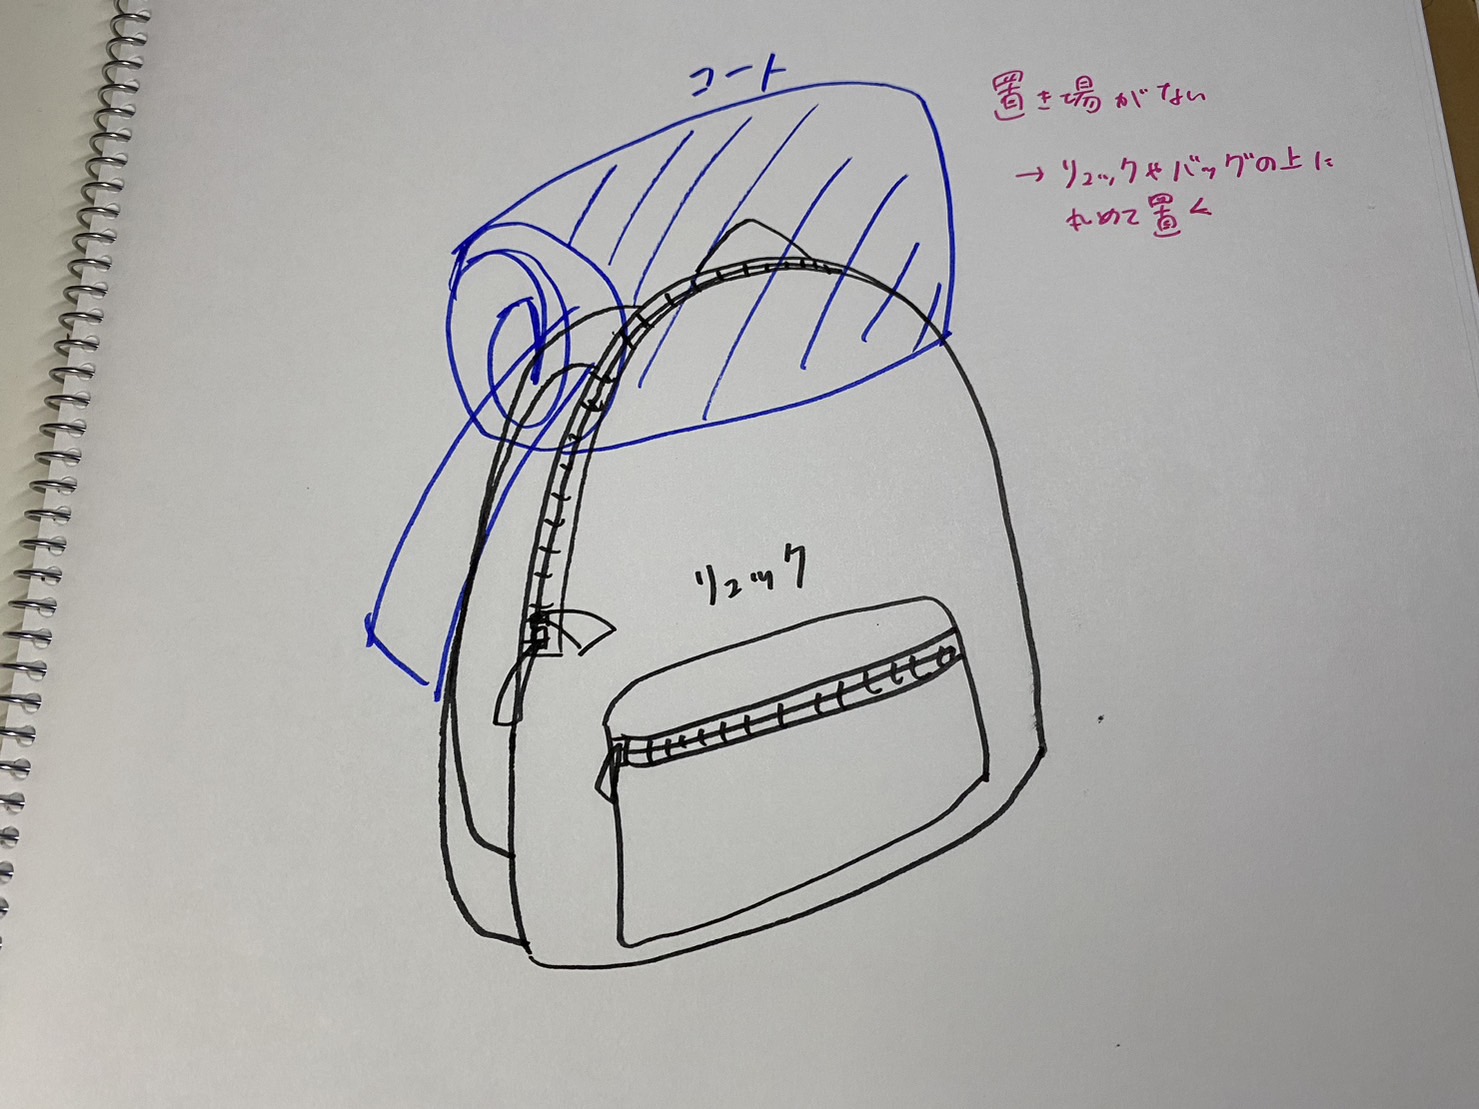 コート
置き場がない
→ リュックやバッグの上に
丸めて置く
リュック